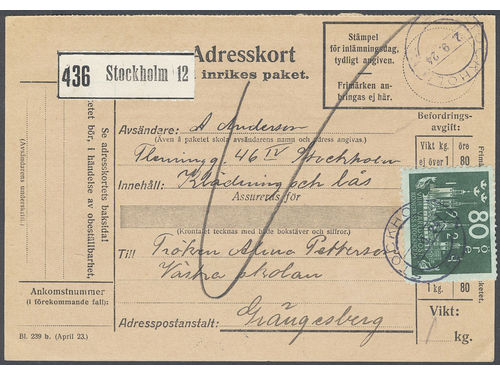 Adresskort
inrikes paket.
436 Stockholm 12
Stämpel
för inlämningsdag,
tydligt angiven.
Frimärken an-
bringas ej här.
2.9.24
Befordrings-
avgift:
Vikt kg. öre
ej över 1 80
Se adresskortets baksida!
etet bör, i händelse av obeställbarhet
(Avsändarens underskrift.)
Avsändare: A Anderson
(Även å paketet skola avsändarens namn och adress angivas.)
Flemingg. 46 IV Stockholm
Innehåll: Klädning och lås
Assureras för
(Krontalet tecknas med både bokstäver och siffror.)
Till Fröken Alma Petterson
Västra skolan
Adresspostanstalt: Grängesberg
80
STOCKHOLM
1 kg. 80
Vikt:
kg.
Ankomstnummer
(i förekommande fall):
Bl. 239 b. (April 23.)